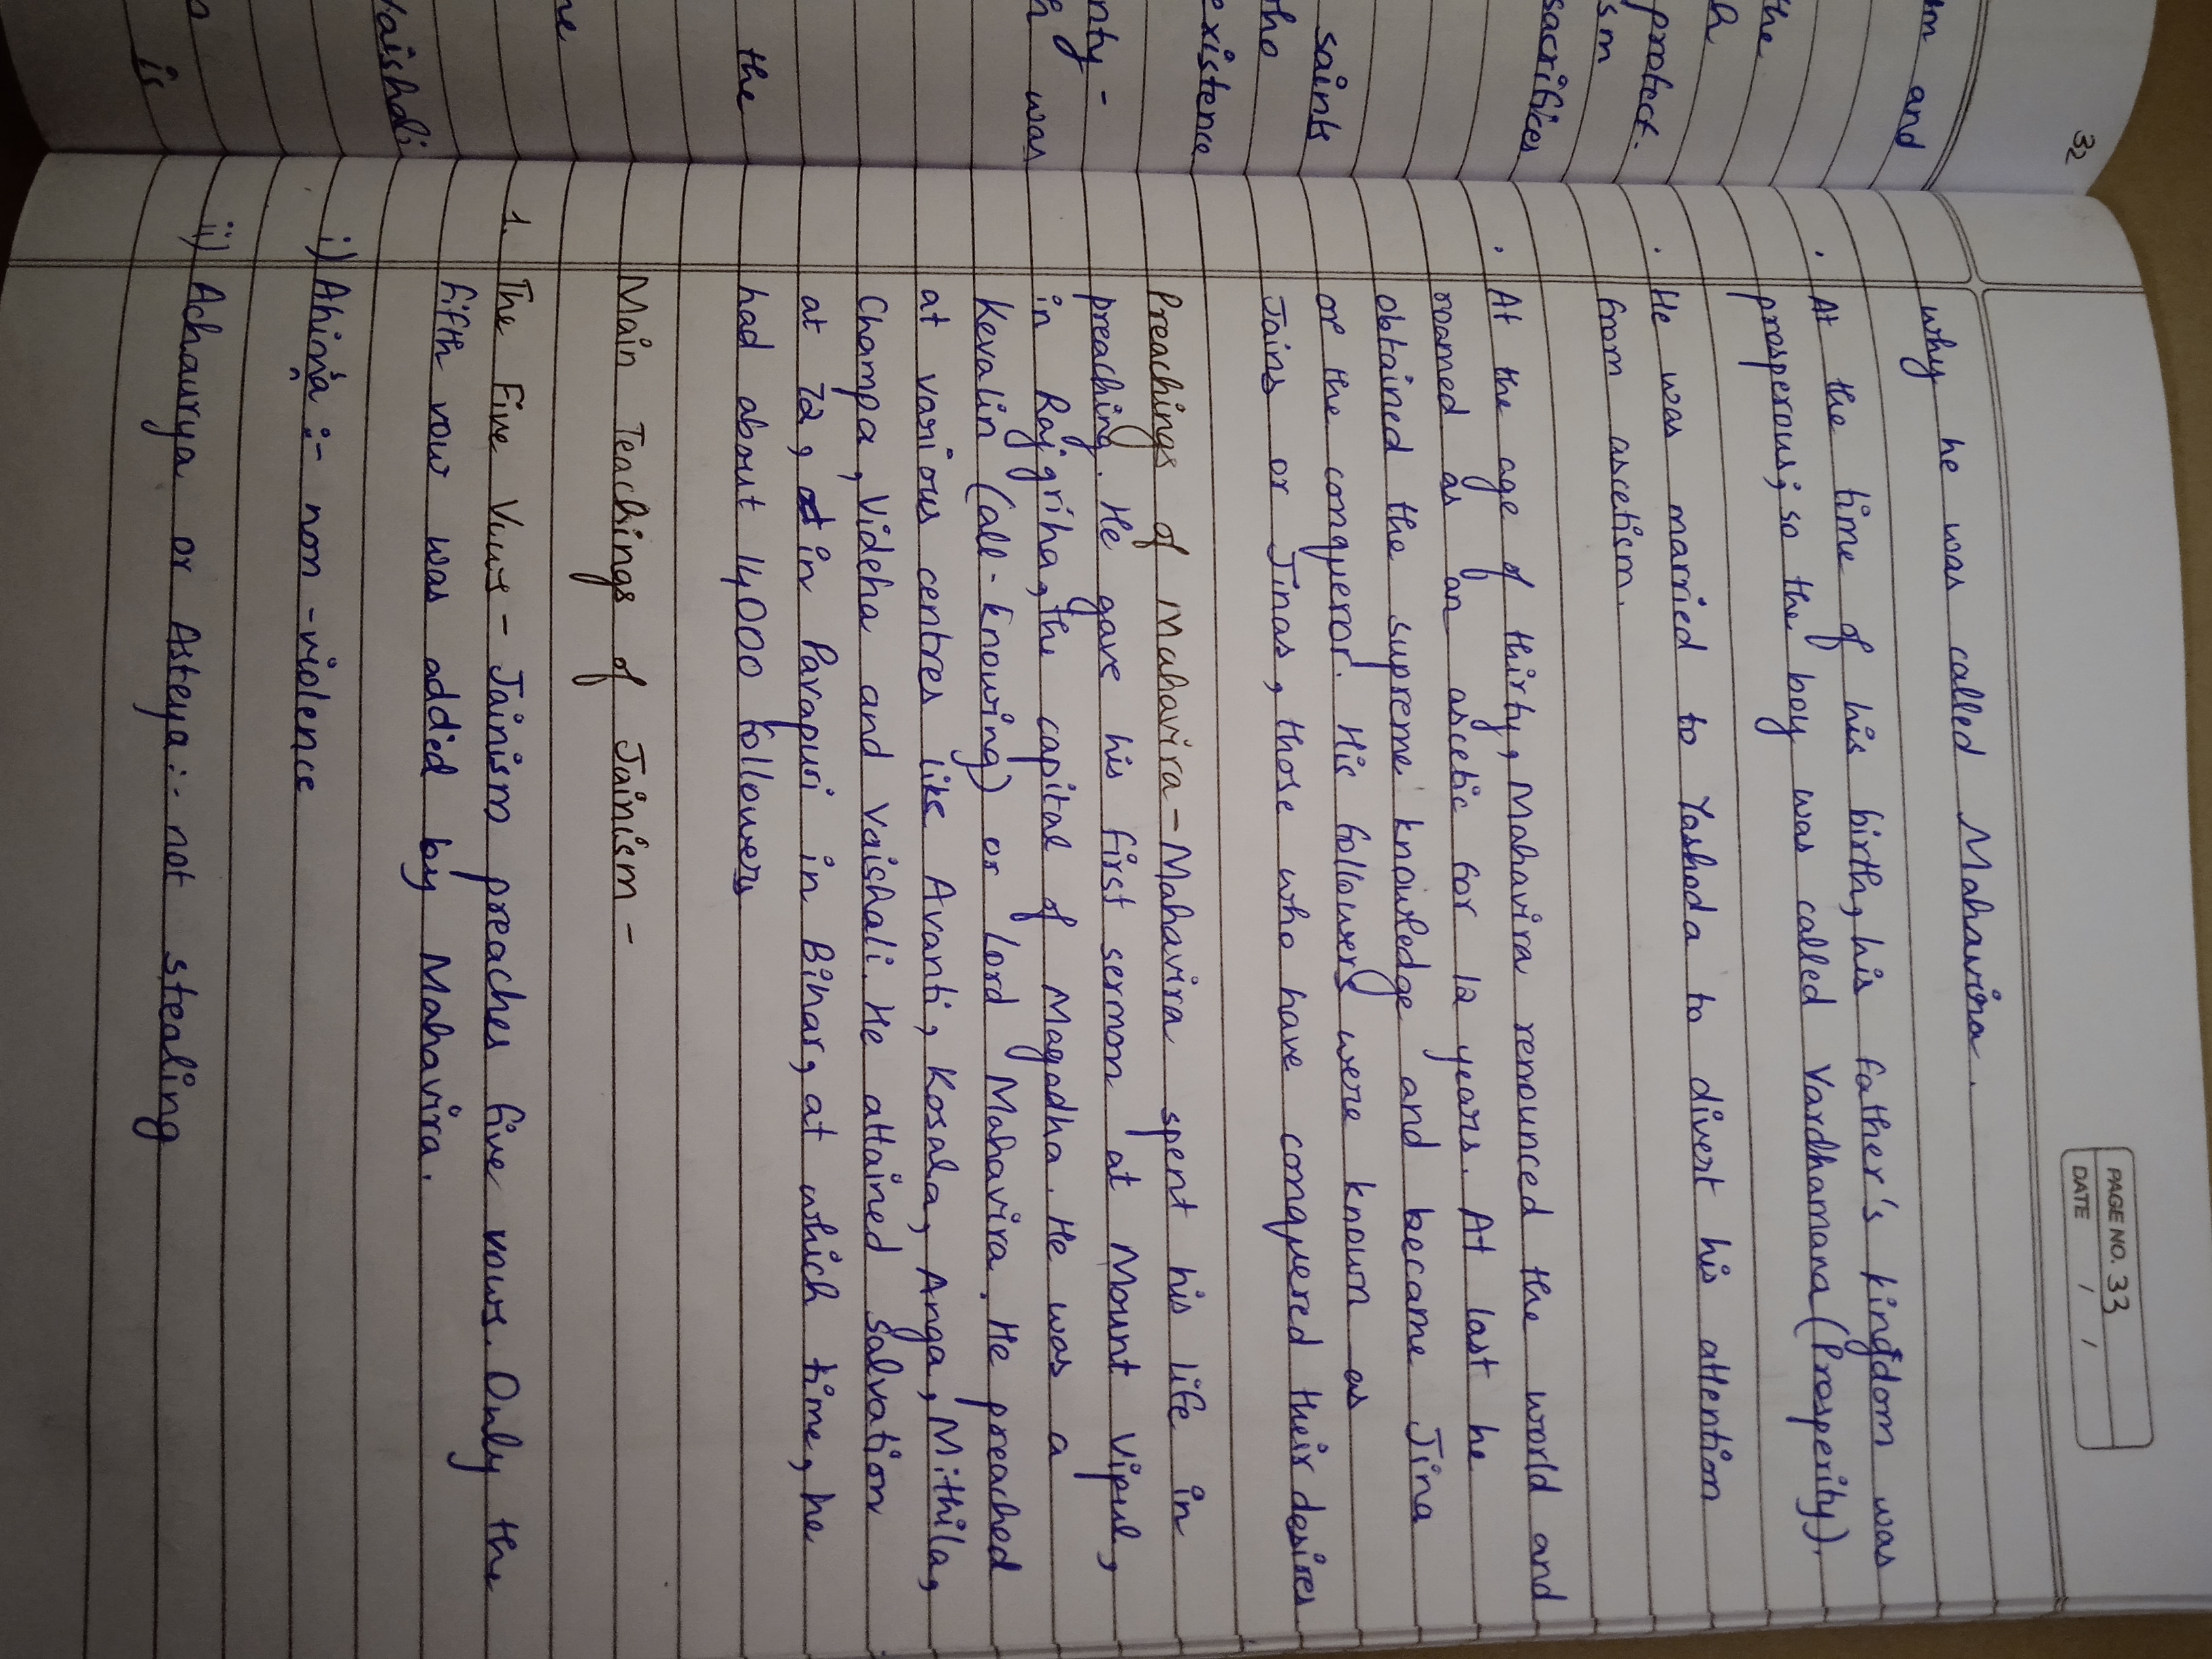 32
m and
the
h
protect.
sm
sacrifices
saints
ho
existene
nty -
h was
the
ne
vaishali
is
PAGE NO. 33
DATE / /
why he was called Mahavira.
. At the time of his birth, his father's kingdom was
prosperous; so the boy was called Vardhamana (Prosperity).
. He was married to Yashoda to divert his attention
from ascetism.
. At the age of thirty, Mahavira renounced the world and
roamed as an ascetic for 12 years. At last he
obtained the supreme knowledge and became Jina
or the conqueror. His followers were known as
Jains or Jinas, those who have conquered their desires
Preachings of Mahavira - Mahavira spent his life in
preaching. He gave his first sermon at Mount Vipul,
in Rajgriha, the capital of Magadha. He was a
Kevalin (all-knowing) or Lord Mahavira. He preached
at various centres like Avanti, Kosala, Anga, Mithila,
Champa, Videha and Vaishali. He attained salvation
at 72, in Pavapuri in Bihar, at which time, he
had about 14,000 followers
Main Teachings of Jainism -
1. The Five Vows - Jainism preaches five vows. Only the
fifth vow was added by Mahavira.
i) Ahimsa :- non-violence
ii) Achaurya or Asteya :- not stealing